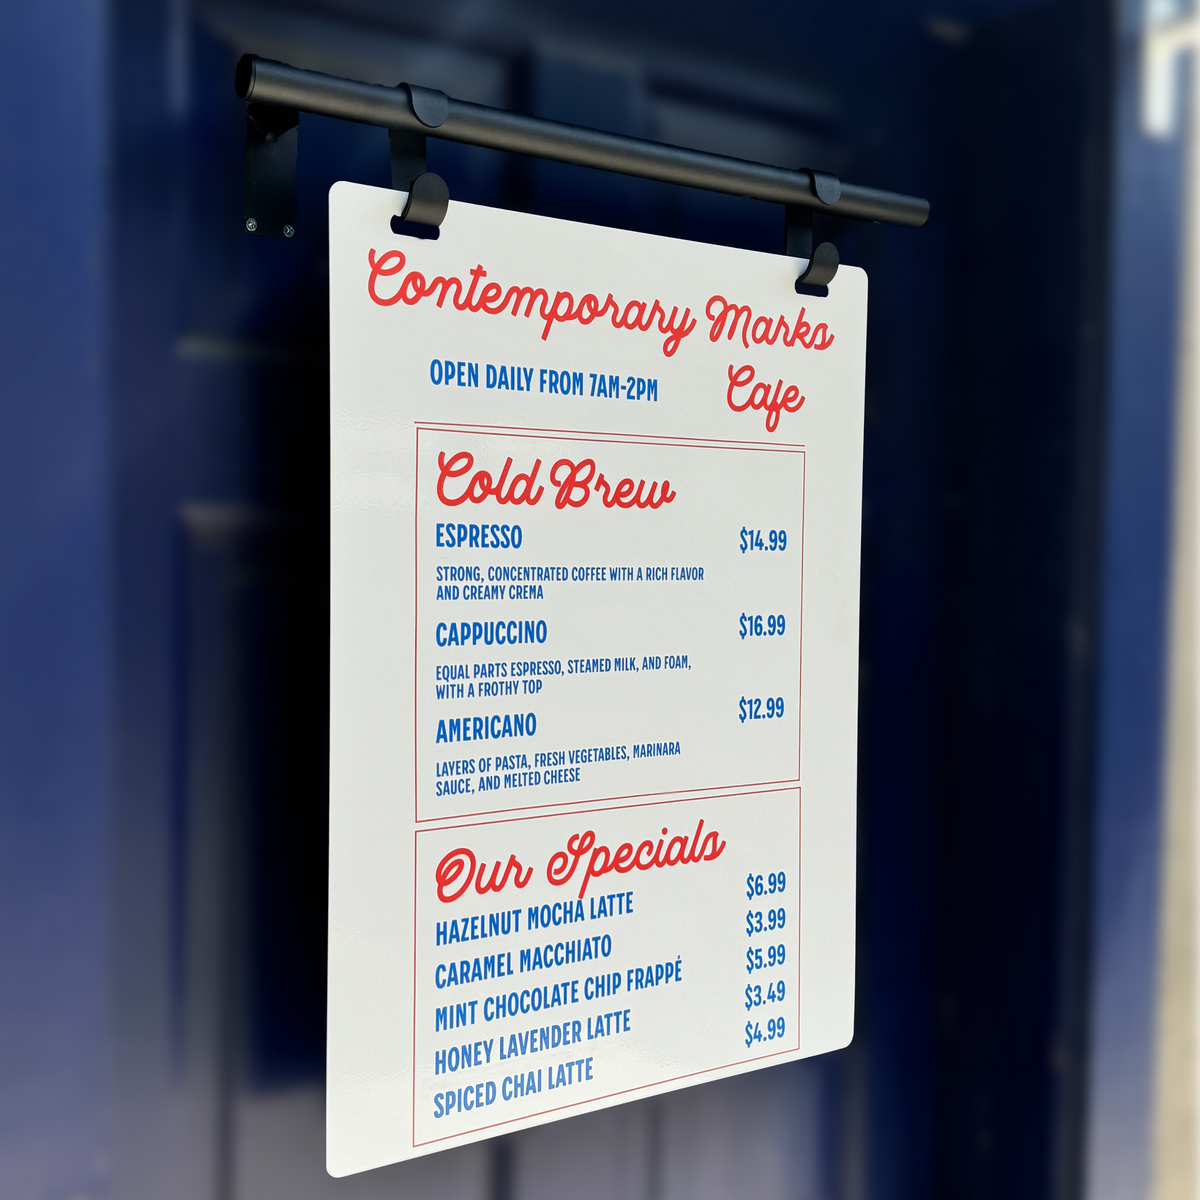 Contemporary Marks
Cafe
OPEN DAILY FROM 7AM-2PM
Cold Brew
ESPRESSO $14.99
STRONG, CONCENTRATED COFFEE WITH A RICH FLAVOR
AND CREAMY CREMA
CAPPUCCINO $16.99
EQUAL PARTS ESPRESSO, STEAMED MILK, AND FOAM,
WITH A FROTHY TOP
AMERICANO $12.99
LAYERS OF PASTA, FRESH VEGETABLES, MARINARA
SAUCE, AND MELTED CHEESE
Our Specials
HAZELNUT MOCHA LATTE $6.99
CARAMEL MACCHIATO $3.99
MINT CHOCOLATE CHIP FRAPPÉ $5.99
HONEY LAVENDER LATTE $3.49
SPICED CHAI LATTE $4.99